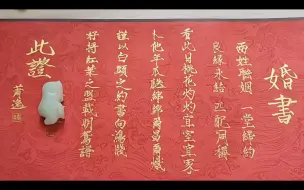 婚書
兩姓聯姻 一堂締約
良緣永結 匹配同稱
看此日桃花灼灼宜室宜家
卜他年瓜瓞綿綿爾昌爾熾
謹以白頭之約書向鴻箋
好將紅葉之盟載明鴛譜
此證